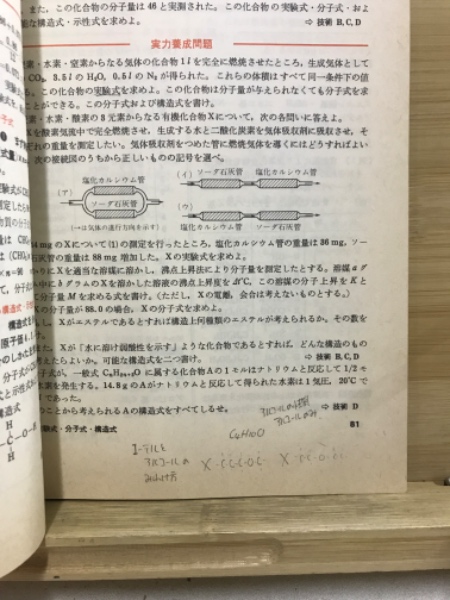 また，この化合物の分子量は 46 と実測された。この化合物の実験式・分子式・およ
な構造式・示性式を求めよ。 ⇨ 技術 B, C, D
実力養成問題
素・水素・窒素からなる気体の化合物 1 l を完全に燃焼させたところ，生成気体として
CO₂, 3.5 l の H₂O, 0.5 l の N₂ が得られた。これらの体積はすべて同一条件下の値
る。この化合物の実験式を求めよ。この有機化合物は分子量が与えられなくても分子式を求
ことができる。この分子式および構造式を書け。
素・水素・酸素の 3 元素からなる有機化合物 X について，次の各問いに答えよ。
X を酸素気流中で完全燃焼させ，生成する水と二酸化炭素を気体吸収剤に吸収させ，そ
ぞれの重量を測定したい。気体吸収剤をつめた管に燃焼気体を導くにはどうすればよい
次の接続図のうちから正しいものの記号を選べ。
塩化カルシウム管 （イ） ソーダ石灰管 塩化カルシウム管
（ア） ソーダ石灰管
（ウ）
（→は気体の進行方向を示す） 塩化カルシウム管 ソーダ石灰管
mg の X について (1) の測定を行ったところ，塩化カルシウム管の重量は 36 mg，ソー
石灰管の重量は 88 mg 増加した。X の実験式を求めよ。
りに X を適当な溶媒に溶かし，沸点上昇法により分子量を測定したとする。溶媒 a グ
中に b グラムの X を溶かした溶液の沸点上昇度を Δt℃，この溶媒の分子上昇を K と
分子量 M を求める式を書け。（ただし，X の電離，会合は考えないものとする。）
の分子量が 88.0 の場合，X の分子式を求めよ。
し，X がエステルであるとすれば構造上何種類のエステルが考えられるか。その数を
た，X が「水に溶け弱酸性を示す」ような化合物であるとすれば，どんな構造のもの
考えたらよいか。可能な構造式を二つ書け。 ⇨ 技術 B, C, D
子式が，一般式 CₙH₂ₙ₊₂O に属する化合物 A の 1 モルはナトリウムと反応して 1/2 モ
水素を発生する。14.8 g の A がナトリウムと反応して得られた水素は 1 気圧，20℃ で
であった。
のことから考えられる A の構造式をすべてしるせ。 ⇨ 技術 D
験式・分子式・構造式 81
C4H10O
エーテルと
アルコールの